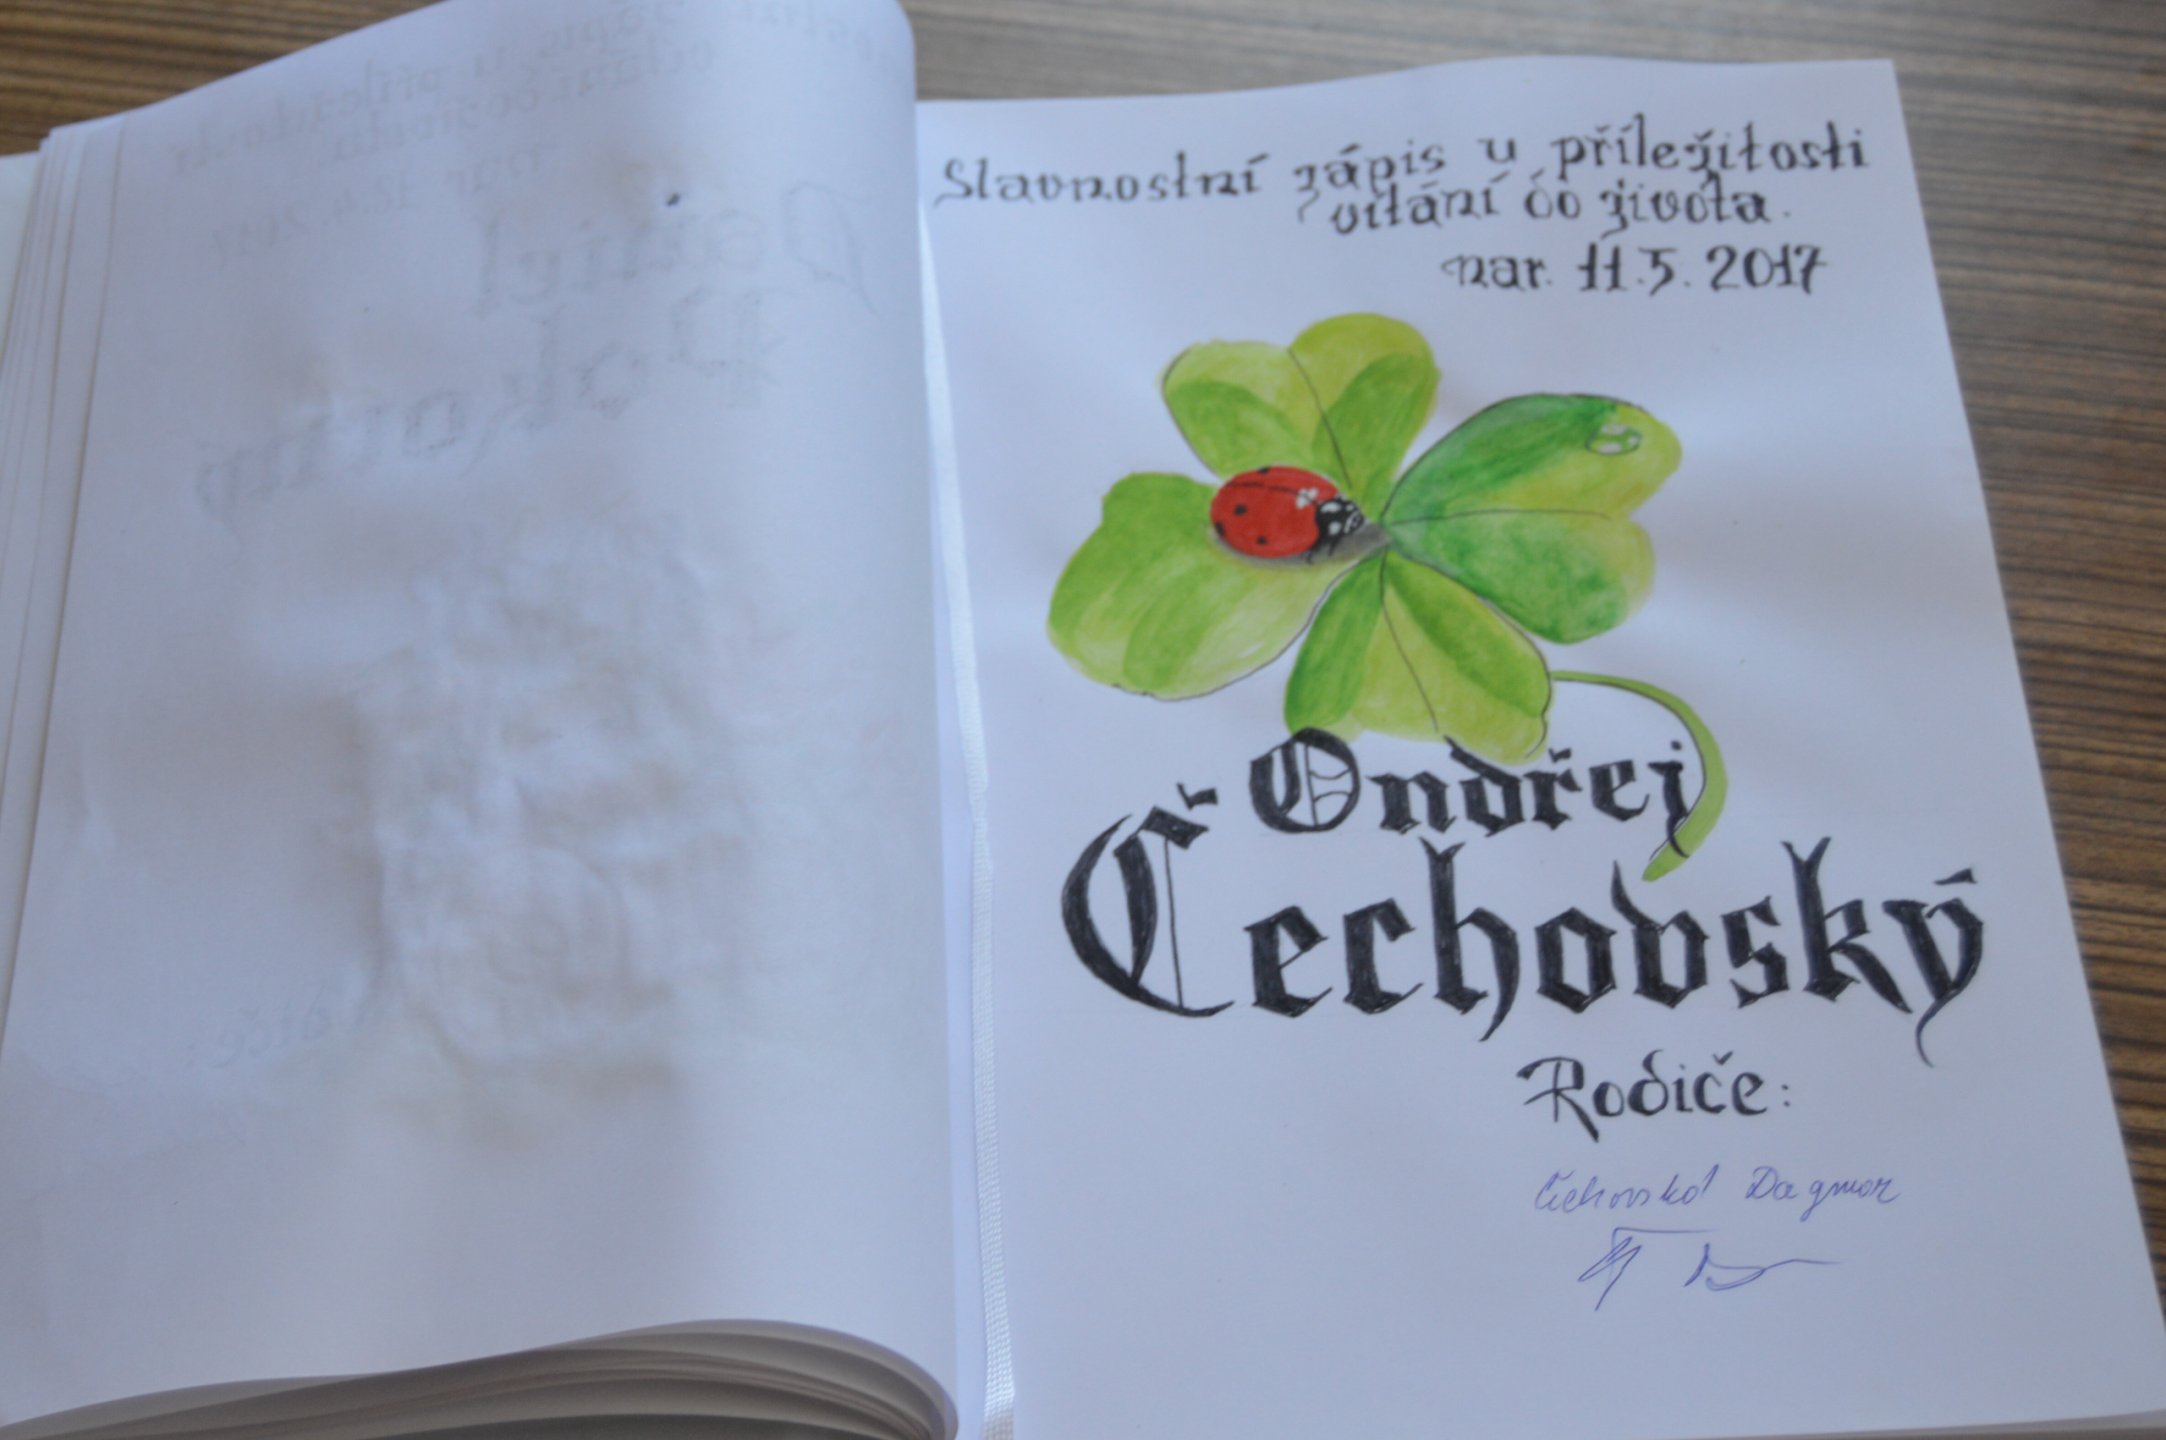 Slavnostní zápis u příležitosti
vítání do života.
nar. 11.5.2017
Ondřej
Čechovský
Rodiče:
Čechovská Dagmar